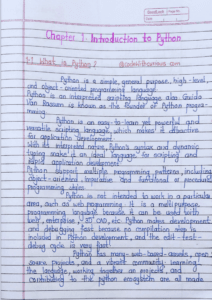 Chapter 1: Introduction to Python
1.1 What is Python?
Python is a simple, general purpose, high-level,
and object-oriented programming language.
Python is an interpreted scripting language also. Guido
Van Rossum is known as the founder of Python progra-
mming.
Python is an easy to learn yet powerful and
versatile scripting language, which makes it attractive
for Application Development.
With its interpreted nature, Python's syntax and dynamic
typing make it an ideal language for scripting and
rapid application development.
Python supports multiple programming patterns, including
object-oriented, imperative and functional or procedural
programming styles.
Python is not intended to work in a particular
area, such as web programming. It is a multi purpose
programming language because it can be used with
web, enterprise, 3D CAD, etc. Python makes development
and debugging fast because no compilation step is
included in Python development, and the edit-test-
debug cycle is very fast.
Python has many web-based assets, open
source projects, and a vibrant community. Learning
the language, working together on projects, and
contributing to the python ecosystem are all made